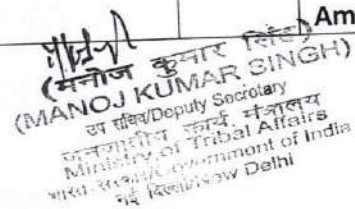 Am
(मनोज कुमार सिंह)
(MANOJ KUMAR SINGH)
उप सचिव/Deputy Secretary
जनजातीय कार्य मंत्रालय
Ministry of Tribal Affairs
भारत सरकार/Government of India
नई दिल्ली/New Delhi